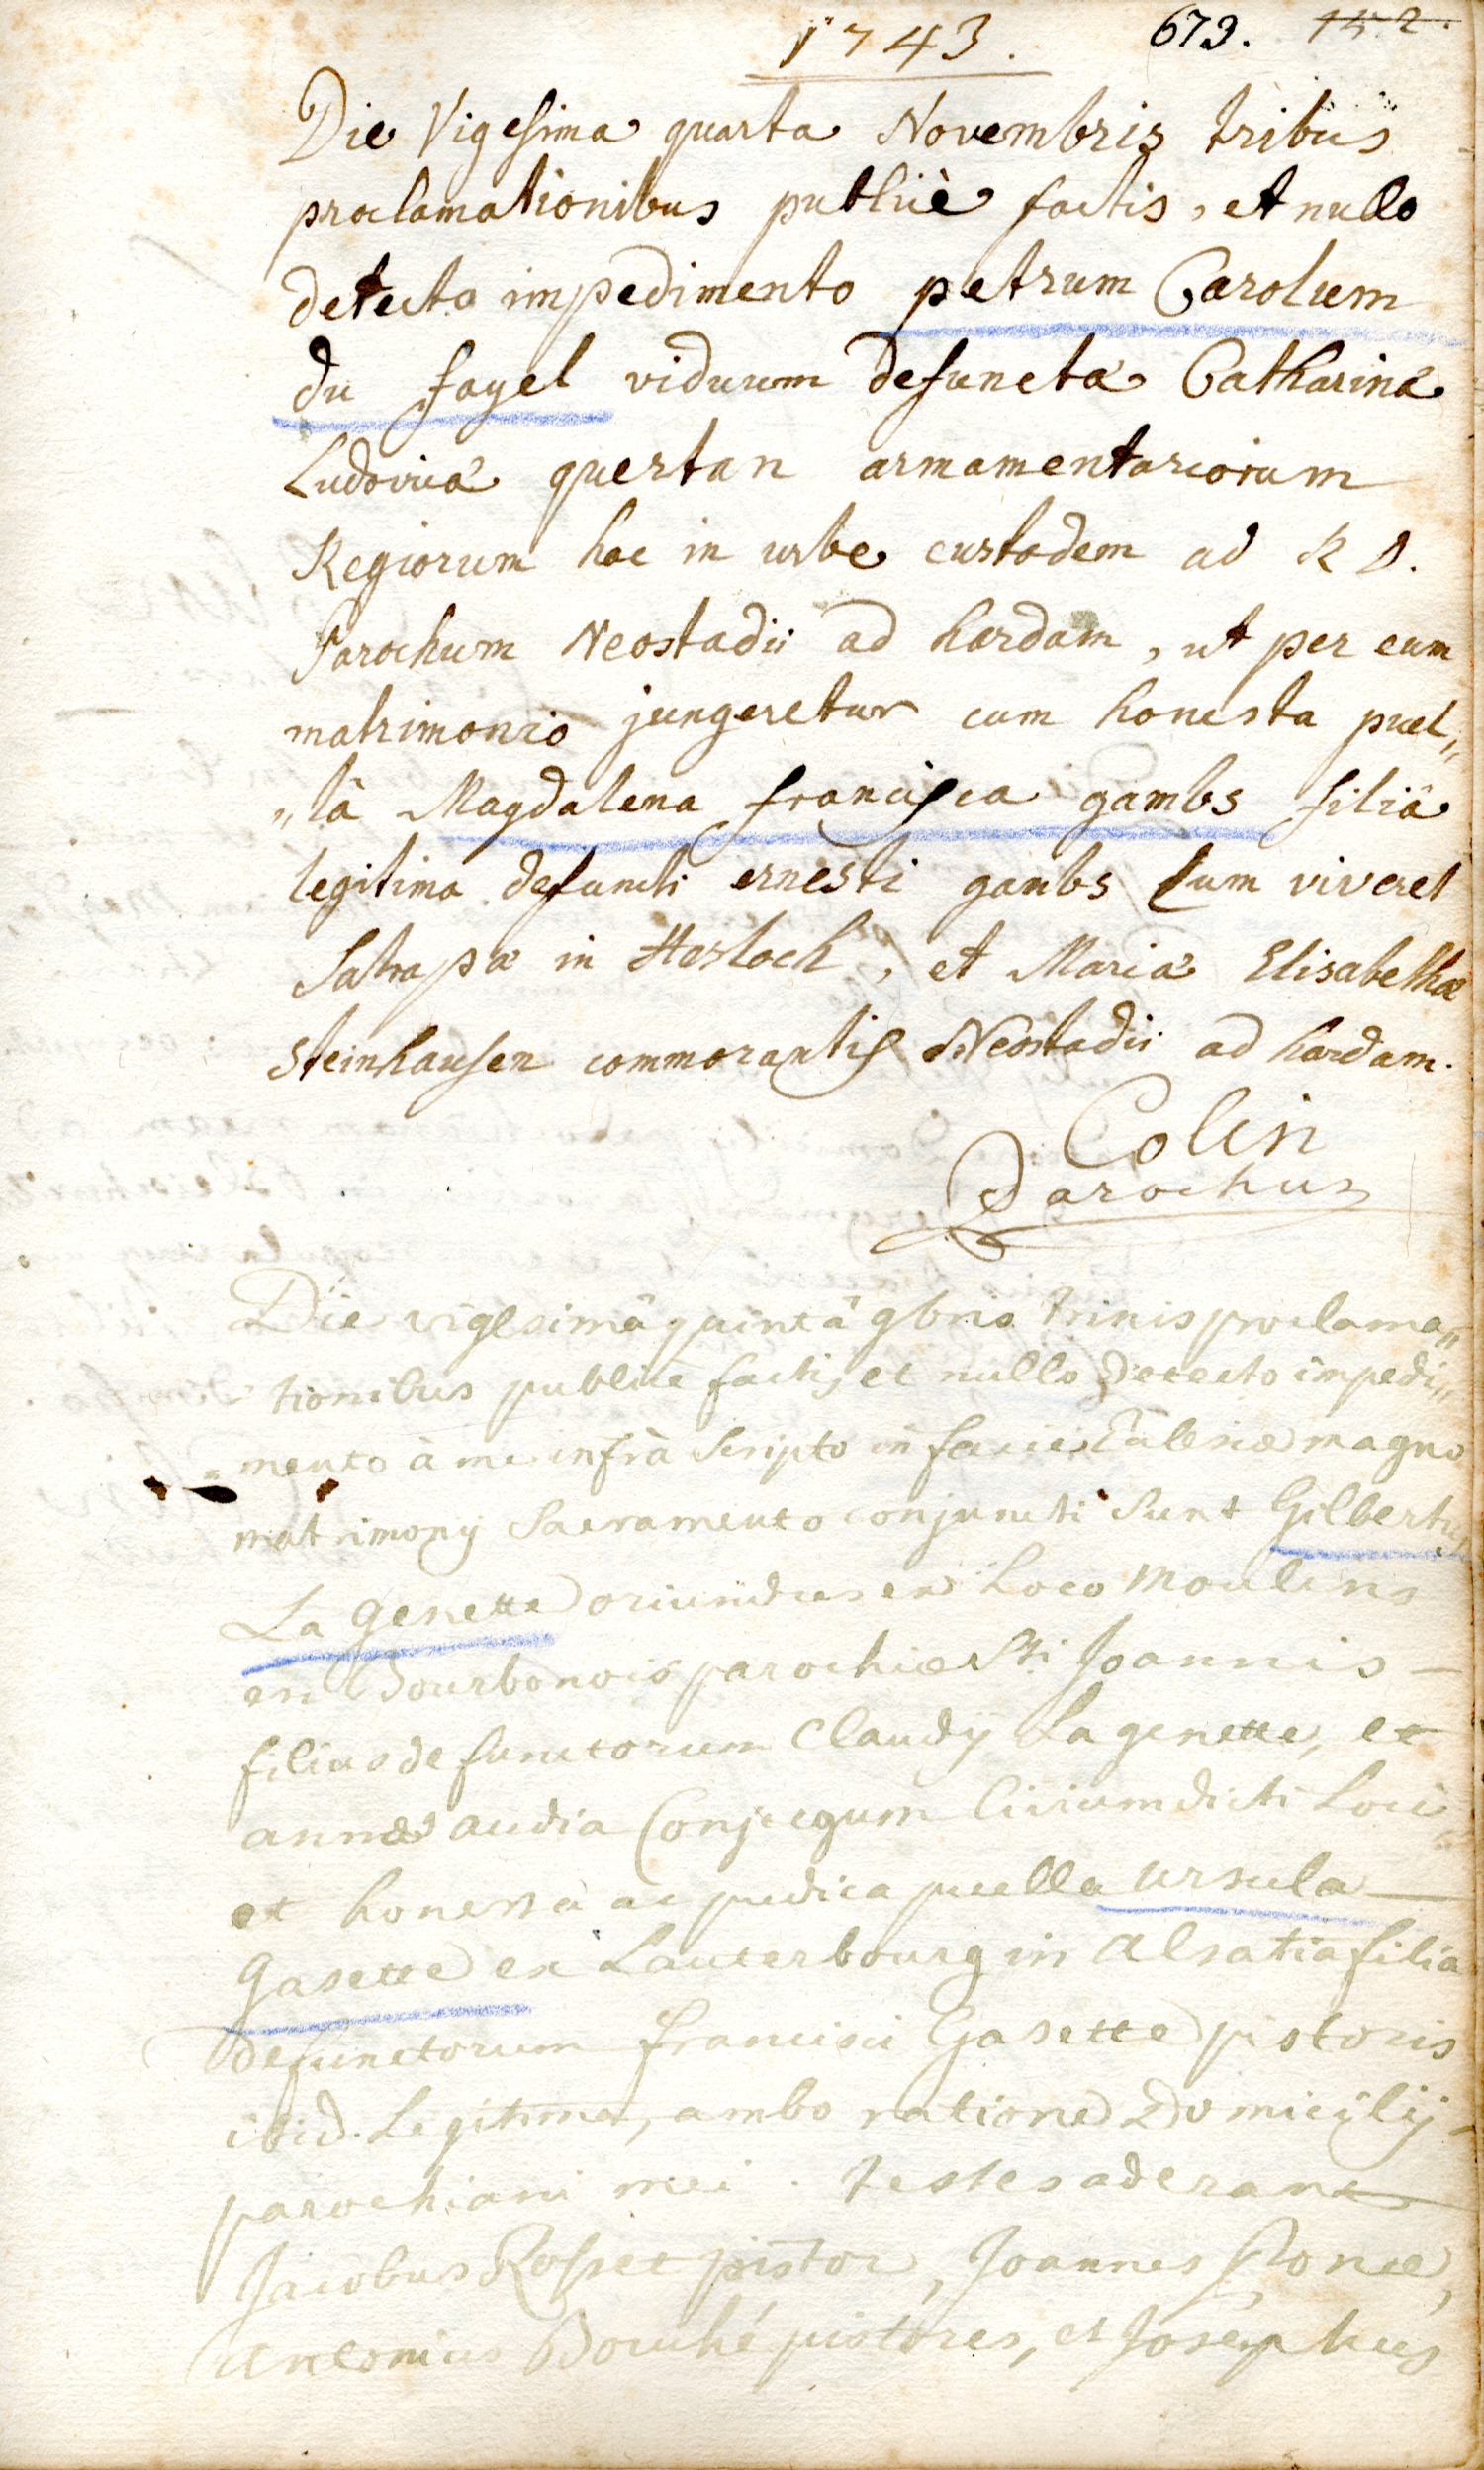 1743. 673. 152.
Die Vigesima quarta Novembris tribus
proclamationibus publicè factis, et nullo
detecto impedimento petrum Carolum
du fayel viduum defunctæ Catharinæ
Ludovicæ quertan armamentariorum
Regiorum hac in urbe custodem ad R D.
Parochum Neostadii ad hardam, ut per eum
matrimonio jungeretur cum honesta puel„
„lâ Magdalena francisca gambs filiâ
legitima defuncti ernesti gambs cum viveret
Satrapæ in Hasloch, et Mariæ Elisabethæ
steinhausen commorantis Neostadii ad hardam.
Colin
Parochus
Die vigesimâ quintâ 9bris trinis proclama„
tionibus publice factis, et nullo detecto impedi„
„mento à me infrà scripto in facie Ecclesiæ magno
matrimonÿ Sacramento conjuncti sunt Gilbertus
La genette oriundus ex loco Moulins
en Bourbonois parochiæ Sti Joannis —
filius defunctorum Claudÿ La genette, et
annæ audia Conjugum Civium dicti Loci
et honesta ac pudica puella ursula —
gasette ex Lauterbourg in alsatia filia
defunctorum francisci Gasette pistoris
ibid. Legitima, ambo ratione Domicilÿ
parochiani mei. testes aderant
Jacobus Rosset pistor, Joannes
antonius Bouché pistores, et Josephus